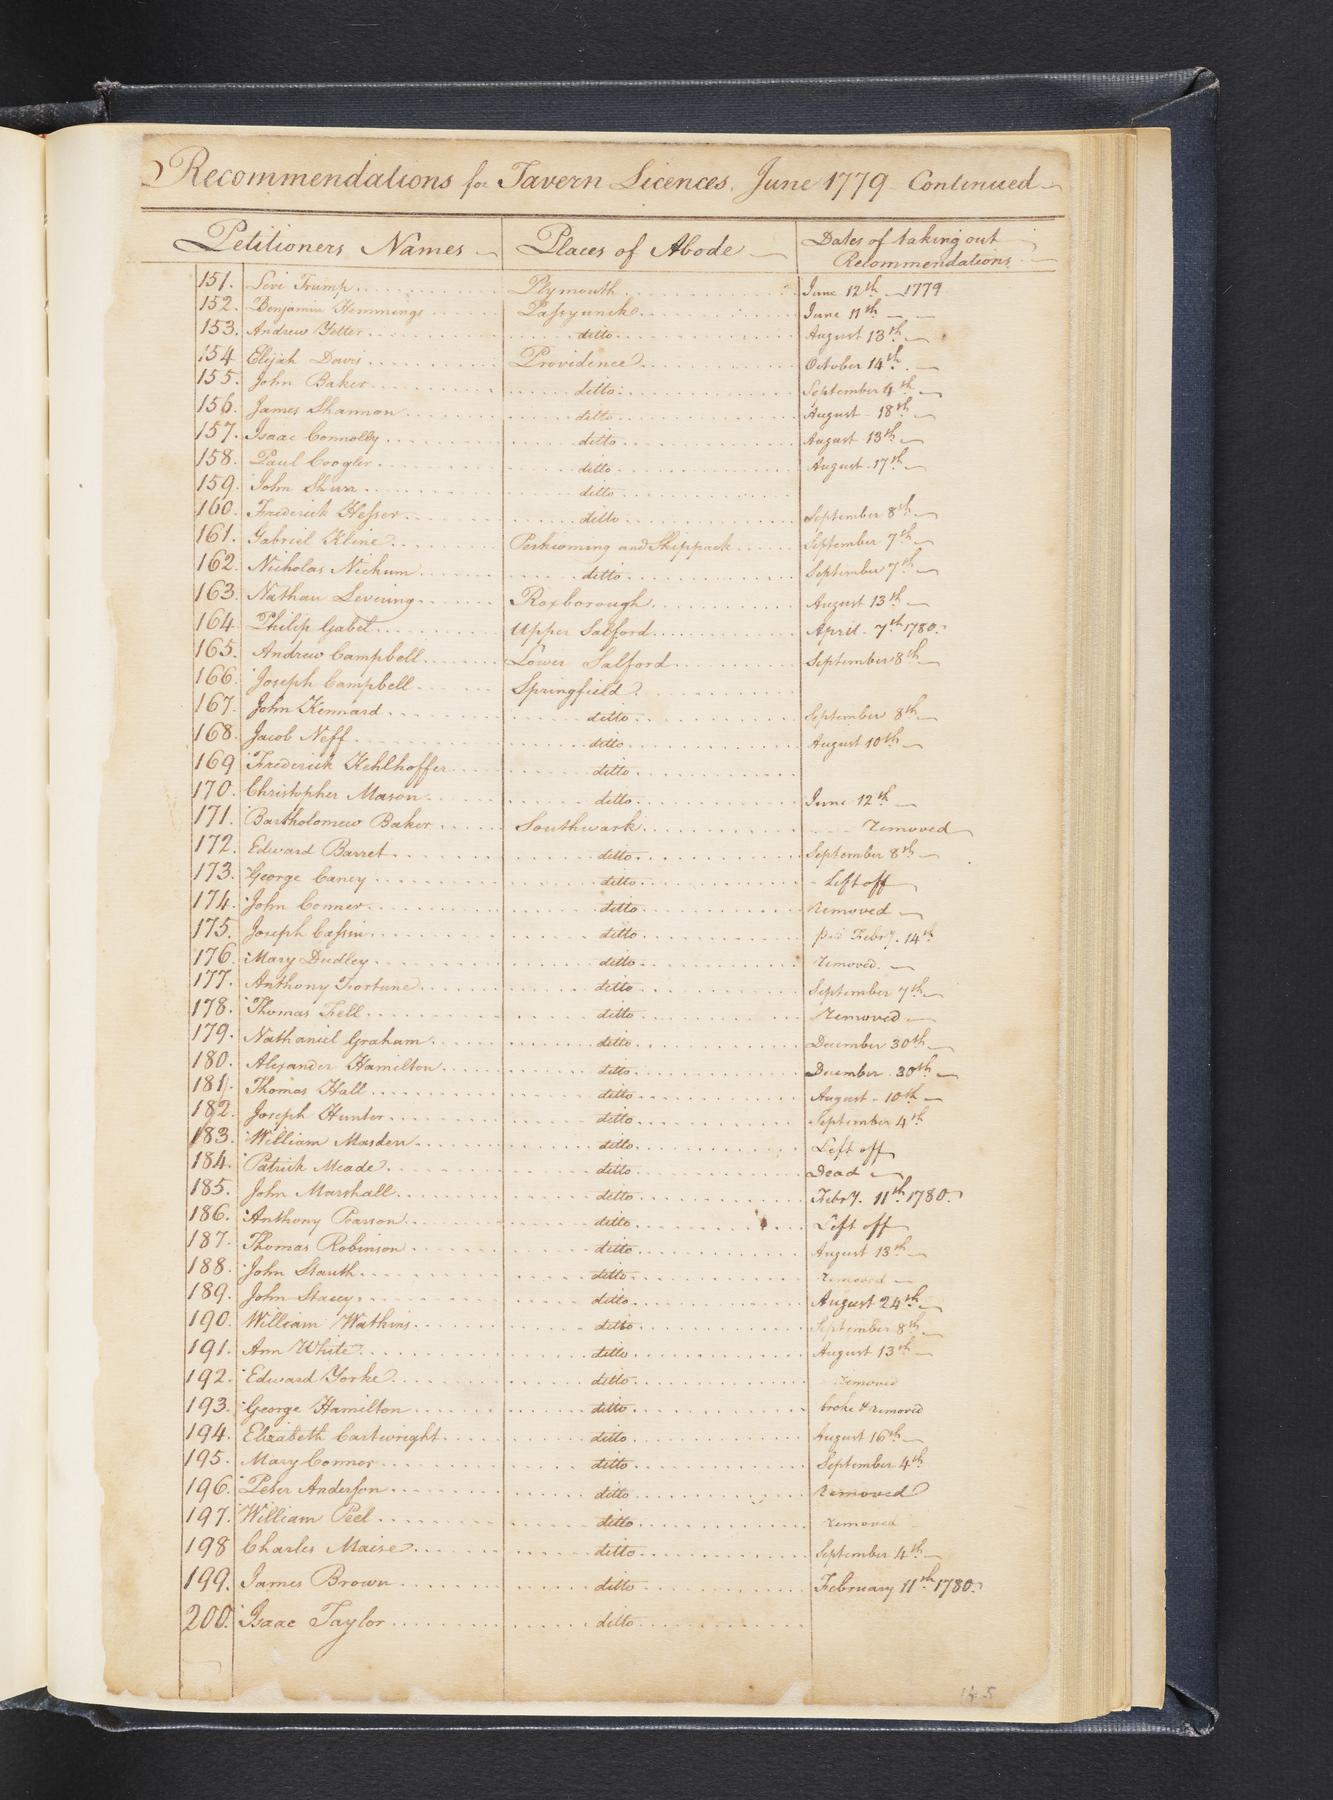 Recommendations for Tavern Licences, June 1779 Continued
Petitioners Names Places of Abode Dates of taking out
Recommendations
151. Levi Trump Plymouth June 12th 1779
152. Benjamin Hemmings Passyunck June 11th
153. Andrew Yetter ditto August 13th
154 Elijah Davis Providence October 14th
155. John Baker ditto September 4th
156. James Shannon ditto August 18th
157. Isaac Connolly ditto August 13th
158. Paul Coogler ditto August 17th
159. John Shurr ditto
160. Frederick Hesser ditto September 8th
161. Gabriel Kline Perkioming and Skippack September 7th
162. Nicholas Nickum ditto September 7th
163. Nathan Levering Roxborough August 13th
164. Philip Gabel Upper Salford April 7th 1780.
165. Andrew Campbell Lower Salford September 8th
166. Joseph Campbell Springfield
167. John Kennard ditto September 8th
168. Jacob Neff ditto August 10th
169 Frederick Kehlhoffer ditto
170. Christopher Mason ditto June 12th
171. Bartholomew Baker Southwark removed
172. Edward Barret ditto September 8th
173. George Caney ditto Left off
174. John Conner ditto Removed
175. Joseph Cassin ditto Febry. 14th
176. Mary Dudley ditto removed.
177. Anthony Fortune ditto September 7th
178. Thomas Fell ditto Removed
179. Nathaniel Graham ditto December 30th
180. Alexander Hamilton ditto December 30th
181. Thomas Hall ditto August 10th
182. Joseph Hunter ditto September 4th
183. William Masden ditto Left off
184. Patrick Meade ditto Dead
185. John Marshall ditto Febry. 11th 1780.
186. Anthony Pearson ditto Left off
187. Thomas Robinson ditto August 13th
188. John Stauth ditto removed
189. John Stacey ditto August 24th
190. William Watkins ditto September 8th
191. Ann White ditto August 13th
192. Edward Yorke ditto removed
193. George Hamilton ditto broke & removed
194. Elizabeth Cartwright ditto August 16th
195. Mary Connor ditto September 4th
196. Peter Anderson ditto Removed
197. William Peel ditto removed
198 Charles Maise ditto September 4th
199. James Brown ditto February 11th 1780.
200. Isaac Taylor ditto
145